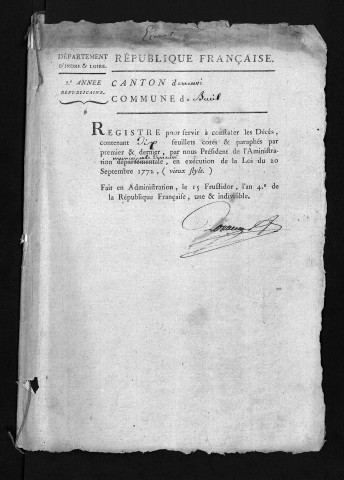 DÉPARTEMENT
D'INDRE & LOIRE.
RÉPUBLIQUE FRANÇAISE.
5.e ANNÉE
RÉPUBLICAINE.
CANTON de
COMMUNE de
REGISTRE pour servir à constater les Décès,
contenant Dix feuillets cotés & paraphés par
premier & dernier, par nous Président de l'Aministra-
tion départementale, en exécution de la Loi du 20
Septembre 1772, (vieux style.)
Fait en Administration, le 15 Fructidor, l'an 4.e de
la République Française, une & indivisible.